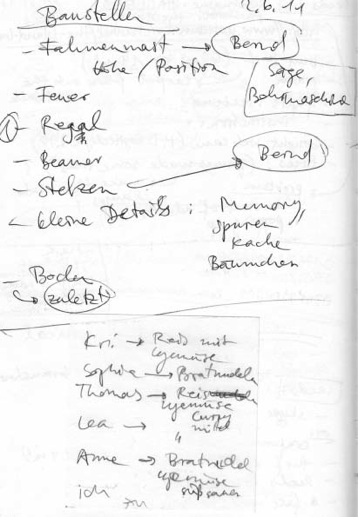 Baustellen 2.6.11
- Fahnenmast → Bernd
Höhe / Position
Säge,
Bohrmaschine
- Feuer
- Regal
- Beamer
- Stelzen → Bernd
- kleine Details : Memory,
Spuren
Bäumchen
- Boden
→ zuletzt
Kri → Reis mit
Gemüse
Sophia → Bratnudeln
Thomas → Reis
Gemüse
Curry
Lea → "
Anne → Bratnudel
Gemüse
süßsauer
ich